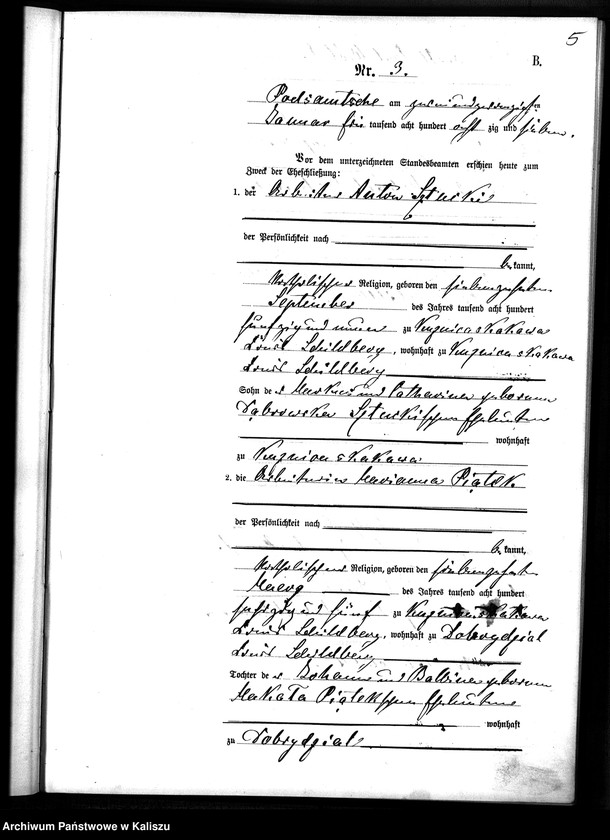 5
B.
Nr. 3.
Podsamtsche am zweiundzwanzigsten
Januar ein tausend acht hundert achtzig und sieben.
Vor dem unterzeichneten Standesbeamten erschien heute zum
Zweck der Eheschließung:
1. der Arbeiter Anton
der Persönlichkeit nach
be kannt,
katholischer Religion, geboren den siebenzehnten
September des Jahres tausend acht hundert
fünfzig und neun zu Kuznica skakawa
Kreis Schildberg, wohnhaft zu Kuznica skakawa
Kreis Schildberg
Sohn der Markus und Catharina geborenen
Dabrowska Eheleute
wohnhaft
zu Kuznica skakawa
2. die Arbeiterin Marianna Piątek
der Persönlichkeit nach
be kannt,
katholischer Religion, geboren den
Maerz des Jahres tausend acht hundert
sechszig und fünf zu Kuznica skakawa
Kreis Schildberg, wohnhaft zu Dobrydzial
Kreis Schildberg
Tochter der Johann und Balbina geborenen
Makata Piątekschen Eheleute
wohnhaft
zu Dobrydzial
Archiwum Państwowe w Kaliszu